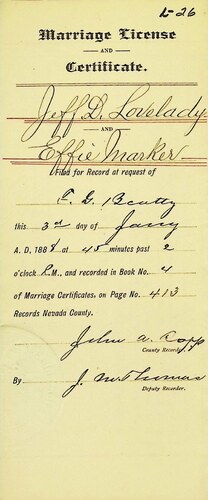 L-26
Marriage License
AND
Certificate.
Jeff D. Lovelady
AND
Effie Marker
Filed for Record at request of
F. G. Beatty
this 3rd day of Jany
A. D. 1888 at 45 minutes past 2
o'clock P. M., and recorded in Book No. 4
of Marriage Certificates, on Page No. 413
Records Nevada County.
John A. Rapp
County Recorder.
By J. McThomas
Deputy Recorder.